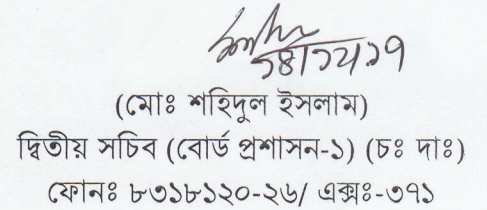 ২৪/১২/১৭
(মোঃ শহিদুল ইসলাম)
দ্বিতীয় সচিব (বোর্ড প্রশাসন-১) (চঃ দাঃ)
ফোনঃ ৮৩১৮১২০-২৬/ এক্সঃ-৩৭১